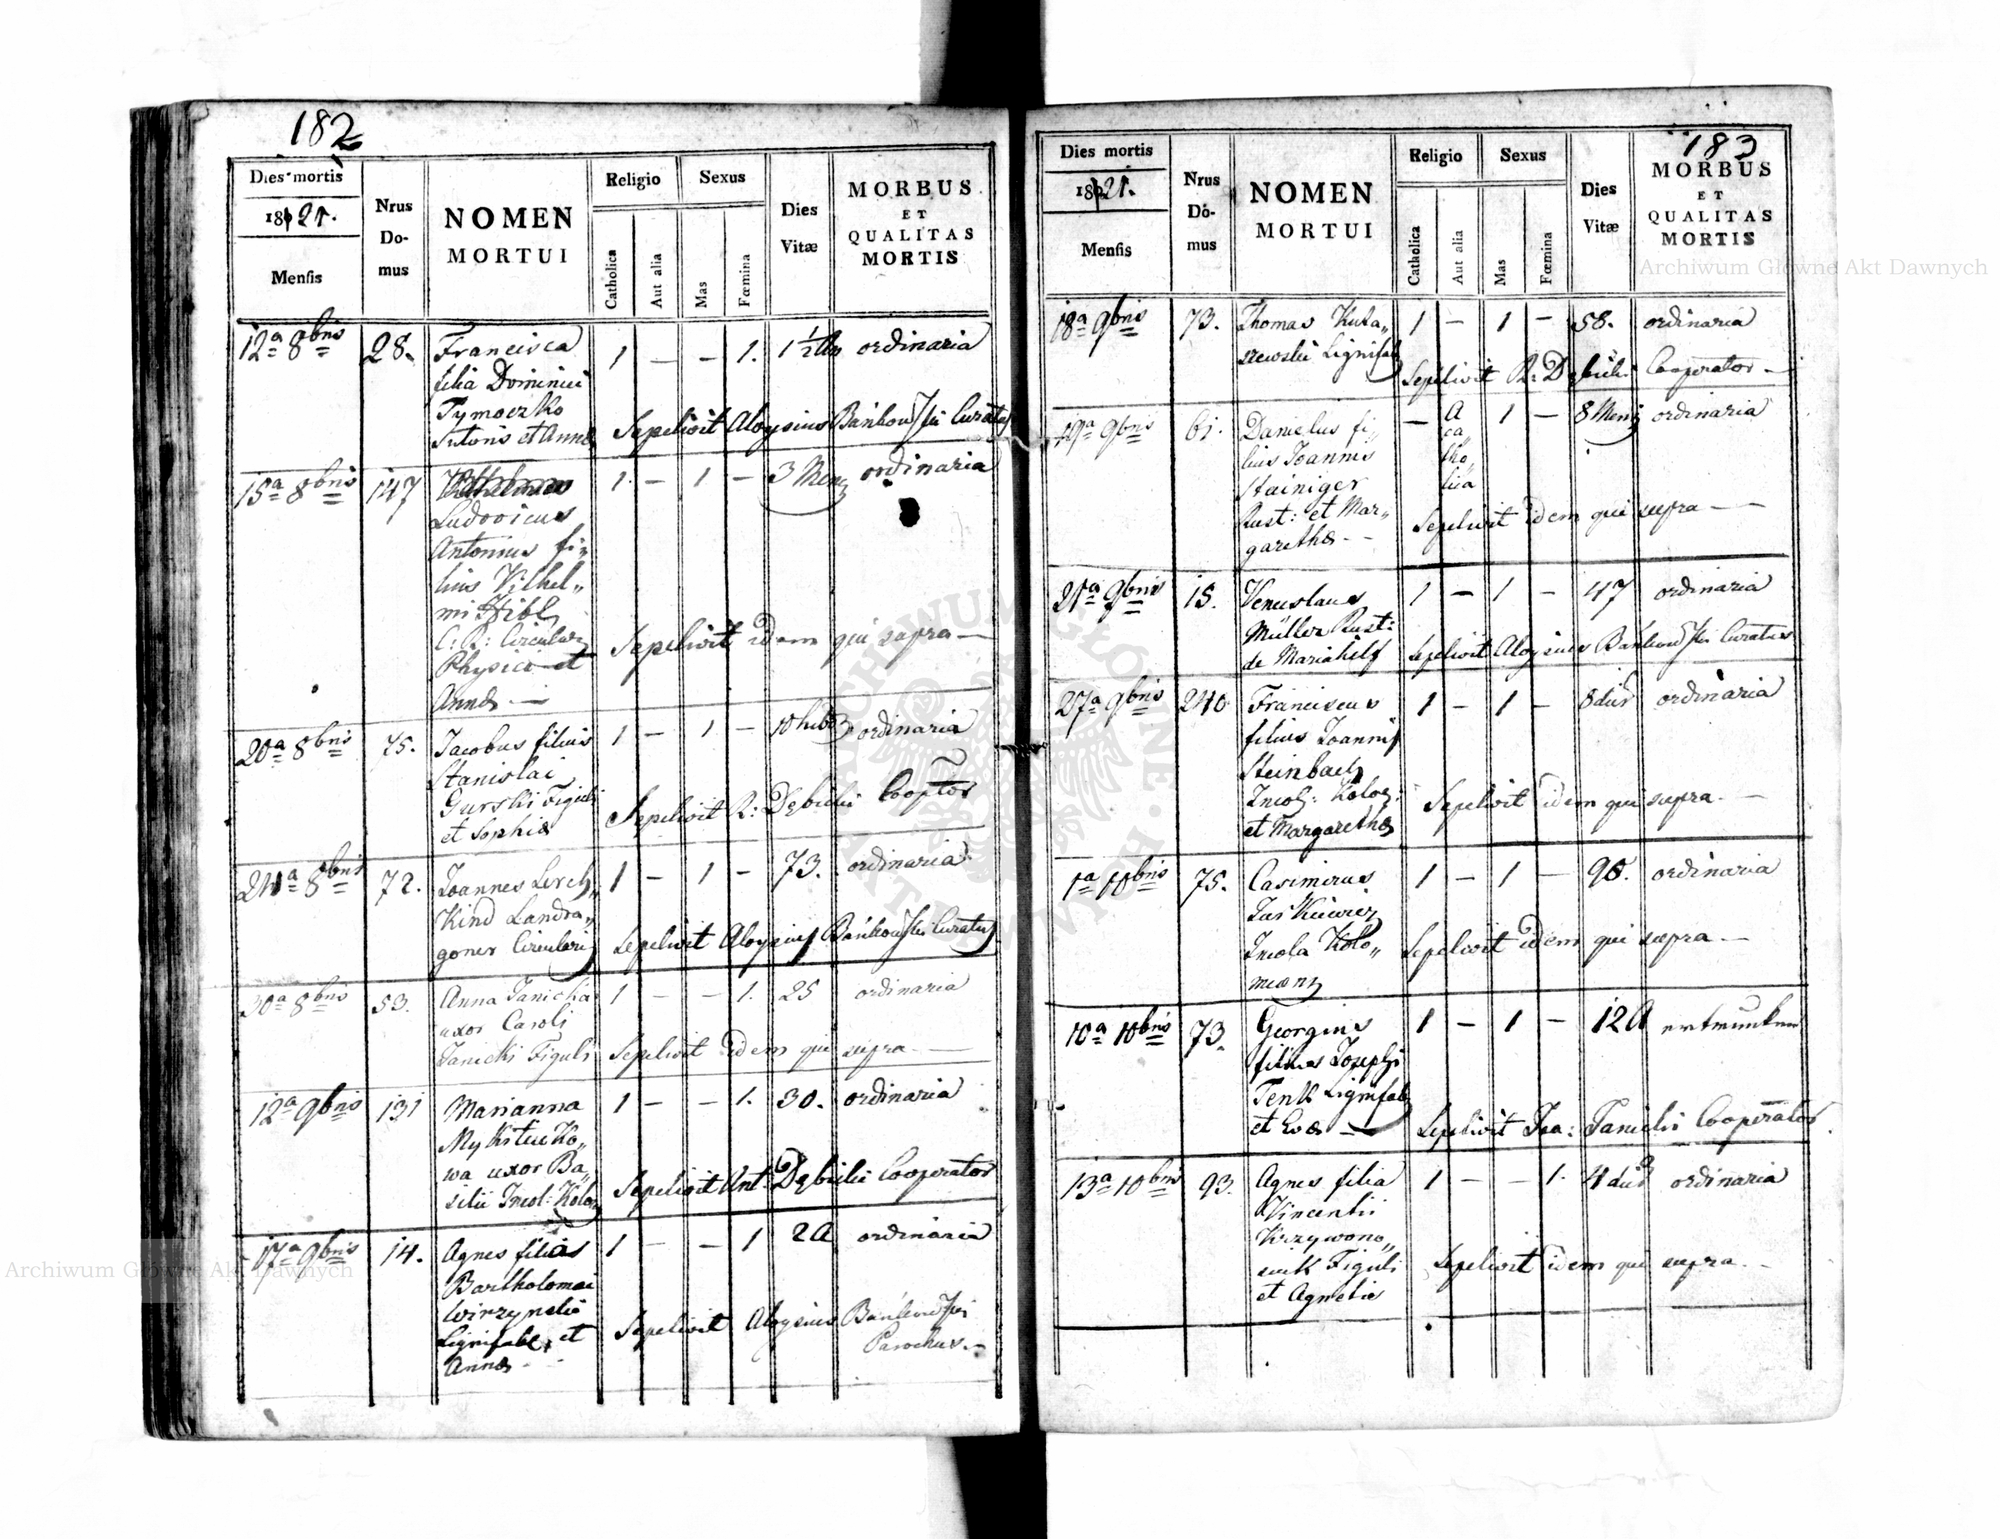 182
Dies mortis
1821.
Mensis
Nrus
Do-
mus
NOMEN
MORTUI
Religio
Catholica
Aut alia
Sexus
Mas
Fœmina
Dies
Vitæ
MORBUS
ET
QUALITAS
MORTIS
12a 8bris 28. Francisca 1 — — 1. 1 1/2 An ordinaria
filia Dominici
Tymoczko
Sutoris et Annæ Sepelivit Aloysius Bańkowski Curatus
15a 8bris 147 1 — 1 — 3 Mens ordinaria
Ludovicus
Antonius fi„
lius Vilhel„
mi Hibl
C: R: Circular Sepelivit idem qui supra —
Physici et
Annæ —
20a 8bris 75. Jacobus filius 1 — 1 — ordinaria
Stanislai
Gurski Figuli Sepelivit R: Dębicki Cooptor
et Sophiæ
24a 8bris 72. Joannes Lerch„ 1 — 1 — 73. ordinaria
Kind Landra„
goner Circularis Sepelivit Aloysius Bańkowski Curatus
30a 8bris 53. Anna Janicka 1 — — 1. 25 ordinaria
uxor Caroli
Janicki Figuli Sepelivit idem qui supra —
12a 9bris 131 Marianna 1 — — 1. 30. ordinaria
Mykituko„
wa uxor Ba„
silii Incol: Kolo Sepelivit Ant: Dębicki Cooperator
17a 9bris 14. Agnes filia 1 — — 1 2A ordinaria
Bartholomæi
Wirzynski
Lignifabr. et Sepelivit Aloysius Bańkowski
Annæ — Parochus. —
183
Dies mortis
1821.
Mensis
Nrus
Do-
mus
NOMEN
MORTUI
Religio
Catholica
Aut alia
Sexus
Mas
Fœmina
Dies
Vitæ
MORBUS
ET
QUALITAS
MORTIS
18a 9bris 73. Thomas Kuta„ 1 — 1 — 58. ordinaria
szewski Lignifab Sepelivit R: Dębicki Cooperator —
19a 9bris 61. Danielus fi„ — A 1 — 8 Mens ordinaria
lius Joannis ca„
Stainiger tho„
Rust: et Mar„ lica
garethæ — Sepelivit idem qui supra —
21a 9bris 15. Venceslaus 1 — 1 — 47 ordinaria
Müller Rust:
de Mariahelf Sepelivit Aloysius Bańkowski Curatus
27a 9bris 240 Franciscus 1 — 1 — 8 dies ordinaria
filius Joannis
Steinbach
Incol: Koloı: Sepelivit idem qui supra —
et Margarethæ
1a 10bris 75. Casimirus 1 — 1 — 90. ordinaria
Juśkiewicz
Incola Kolo„ Sepelivit idem qui supra —
meens
10a 10bris 73. Georgius 1 — 1 — 12A ertrunken
filius Josephi
Tenk Lignifab
et Evæ — Sepelivit Joa: Janicki Cooperator
13a 10bris 93. Agnes filia 1 — — 1. 4 dies ordinaria
Vincentii
Krzywono„
siuk Figuli Sepelivit idem qui supra —
et Agnetis
Archiwum Główne Akt Dawnych
Archiwum Główne Akt Dawnych
ARCHIWUM GŁÓWNE AKT DAWNYCH